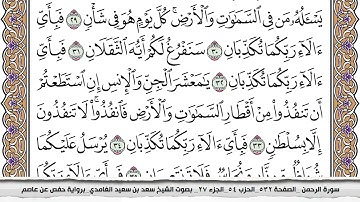 يَسْـَٔلُهُۥ مَن فِى ٱلسَّمَـٰوَٰتِ وَٱلْأَرْضِ ۚ كُلَّ يَوْمٍ هُوَ فِى شَأْنٍ ٢٩ فَبِأَىِّ
ءَالَآءِ رَبِّكُمَا تُكَذِّبَانِ ٣٠ سَنَفْرُغُ لَكُمْ أَيُّهَ ٱلثَّقَلَانِ ٣١ فَبِأَىِّ
ءَالَآءِ رَبِّكُمَا تُكَذِّبَانِ ٣٢ يَـٰمَعْشَرَ ٱلْجِنِّ وَٱلْإِنسِ إِنِ ٱسْتَطَعْتُمْ
أَن تَنفُذُوا۟ مِنْ أَقْطَارِ ٱلسَّمَـٰوَٰتِ وَٱلْأَرْضِ فَٱنفُذُوا۟ ۚ لَا تَنفُذُونَ
إِلَّا بِسُلْطَـٰنٍ ٣٣ فَبِأَىِّ ءَالَآءِ رَبِّكُمَا تُكَذِّبَانِ ٣٤ يُرْسَلُ عَلَيْكُمَا
سورة الرحمن _الصفحة ٥٣٢_الحزب ٥٤ _الجزء ٢٧ _ بصوت الشيخ سعد بن سعيد الغامدي _برواية حفص عن عاصم